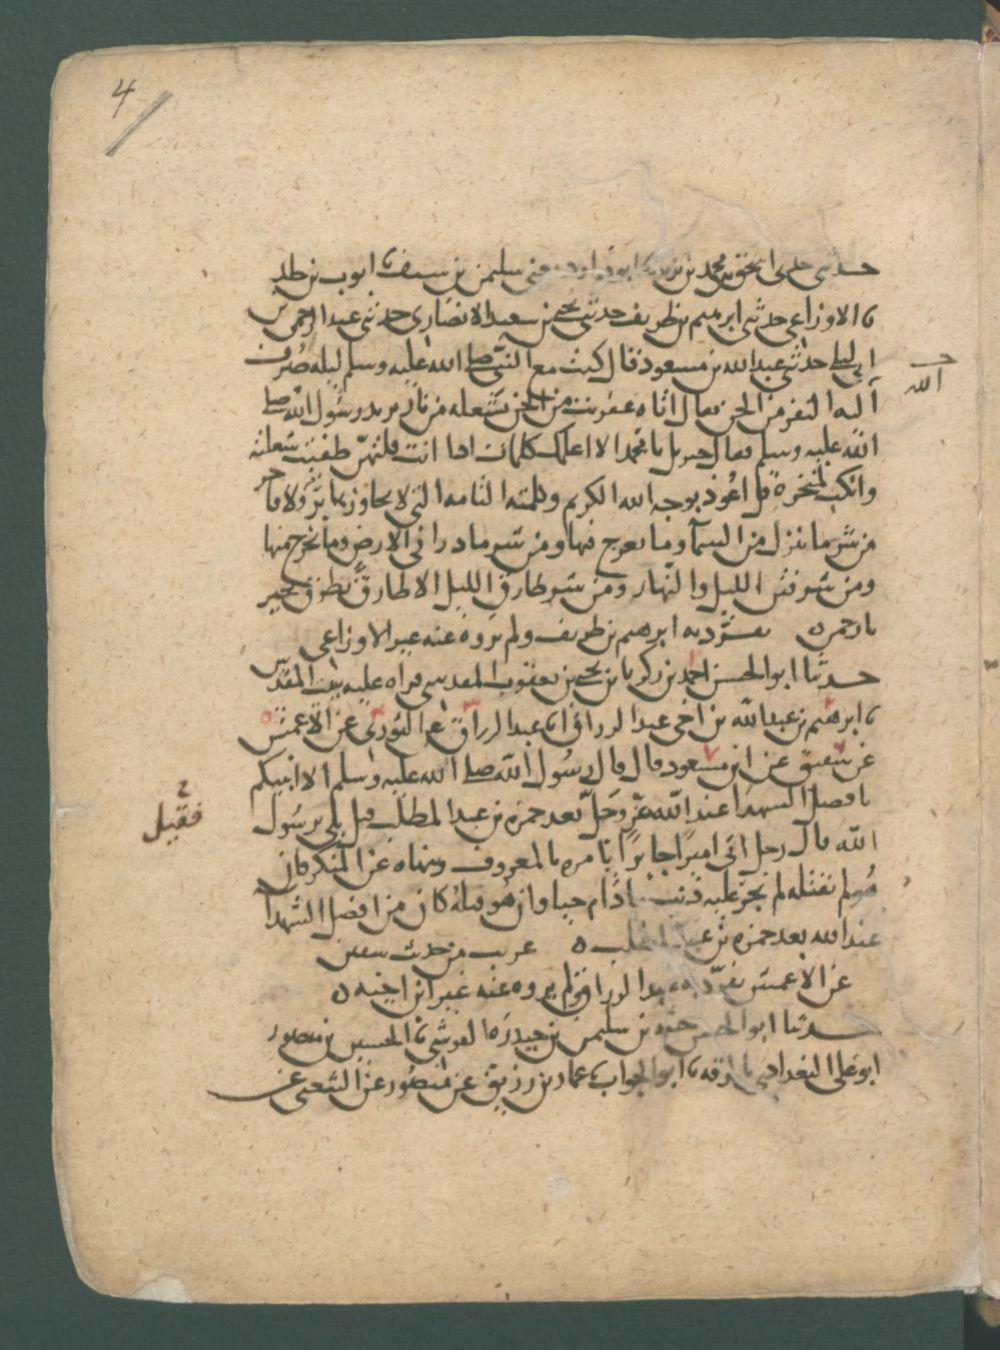 4
حدثني اسحق بن محمد بن يزيد سليمن بن سيف نا ايوب بن خلد
نا الاوزاعي حدثني ابرهيم بن طريف حدثني يحيى بن سعيد الانصاري حدثني عبد الرحمن بن
ابي ليلى حدثني عبد الله بن مسعود قال كنت مع النبي صلى الله عليه وسلم ليلة صرف
اليه النفر من الجن فقال اتاه عفريت من الجن بشعله من نار يريد رسول الله صلى
الله عليه وسلم فقال جبريل يا محمد الا اعلمك كلمات اذا انت قلتهن طفيت شعلته
وانكب لمنخره قل اعوذ بوجه الله الكريم وكلمته التامه التي لا يجاوزها بر ولا فاجر
من شر ما ينزل من السمآ وما يعرج فيها ومن شر ما ذرا في الارض وما يخرج منها
ومن شر فتن الليل والنهار ومن شر طارق الليل الا طارق يطرق بخير
يا رحمن ه تفرد به ابرهيم بن طريف ولم يروه عنه غير الاوزاعي
حدثنا ابو الحسن احمد بن زكريا بن يحيى بن يعقوب المقدسي قراه عليه بيت المقدس
نا ابرهيم بن عبد الله بن اخي عبد الرزاق انا عبد الرزاق عن الثوري عن الاعمش
عن شقيق عن ابن مسعود قال قال رسول الله صلى الله عليه وسلم الا انبيكم
بافضل الشهدا عند الله عز وجل بعد حمزه بن عبد المطلب قيل بلى يرسول
الله قال رجل اتى اميرا جايرا يامره بالمعروف وينهاه عن المنكر فان
هو لم يقتله لم يجر عليه ذنب ما دام حيا وان هو قتله كان من افضل الشهدآ
عند الله بعد حمزه بن عبد المطلب ه غريب من حديث سفين
عن الاعمش تفرد به عبد الرزاق ولم يروه عنه غير ابن اخيه ه
حدثنا ابو الحسن خيثمه بن سليمن بن حيدره القرشي نا الحسين بن منصور
ابو علي البغدادي بالرقه نا ابو الجواب نا عمار بن رزيق عن منصور عن الشعبي عن
الله
فقيل